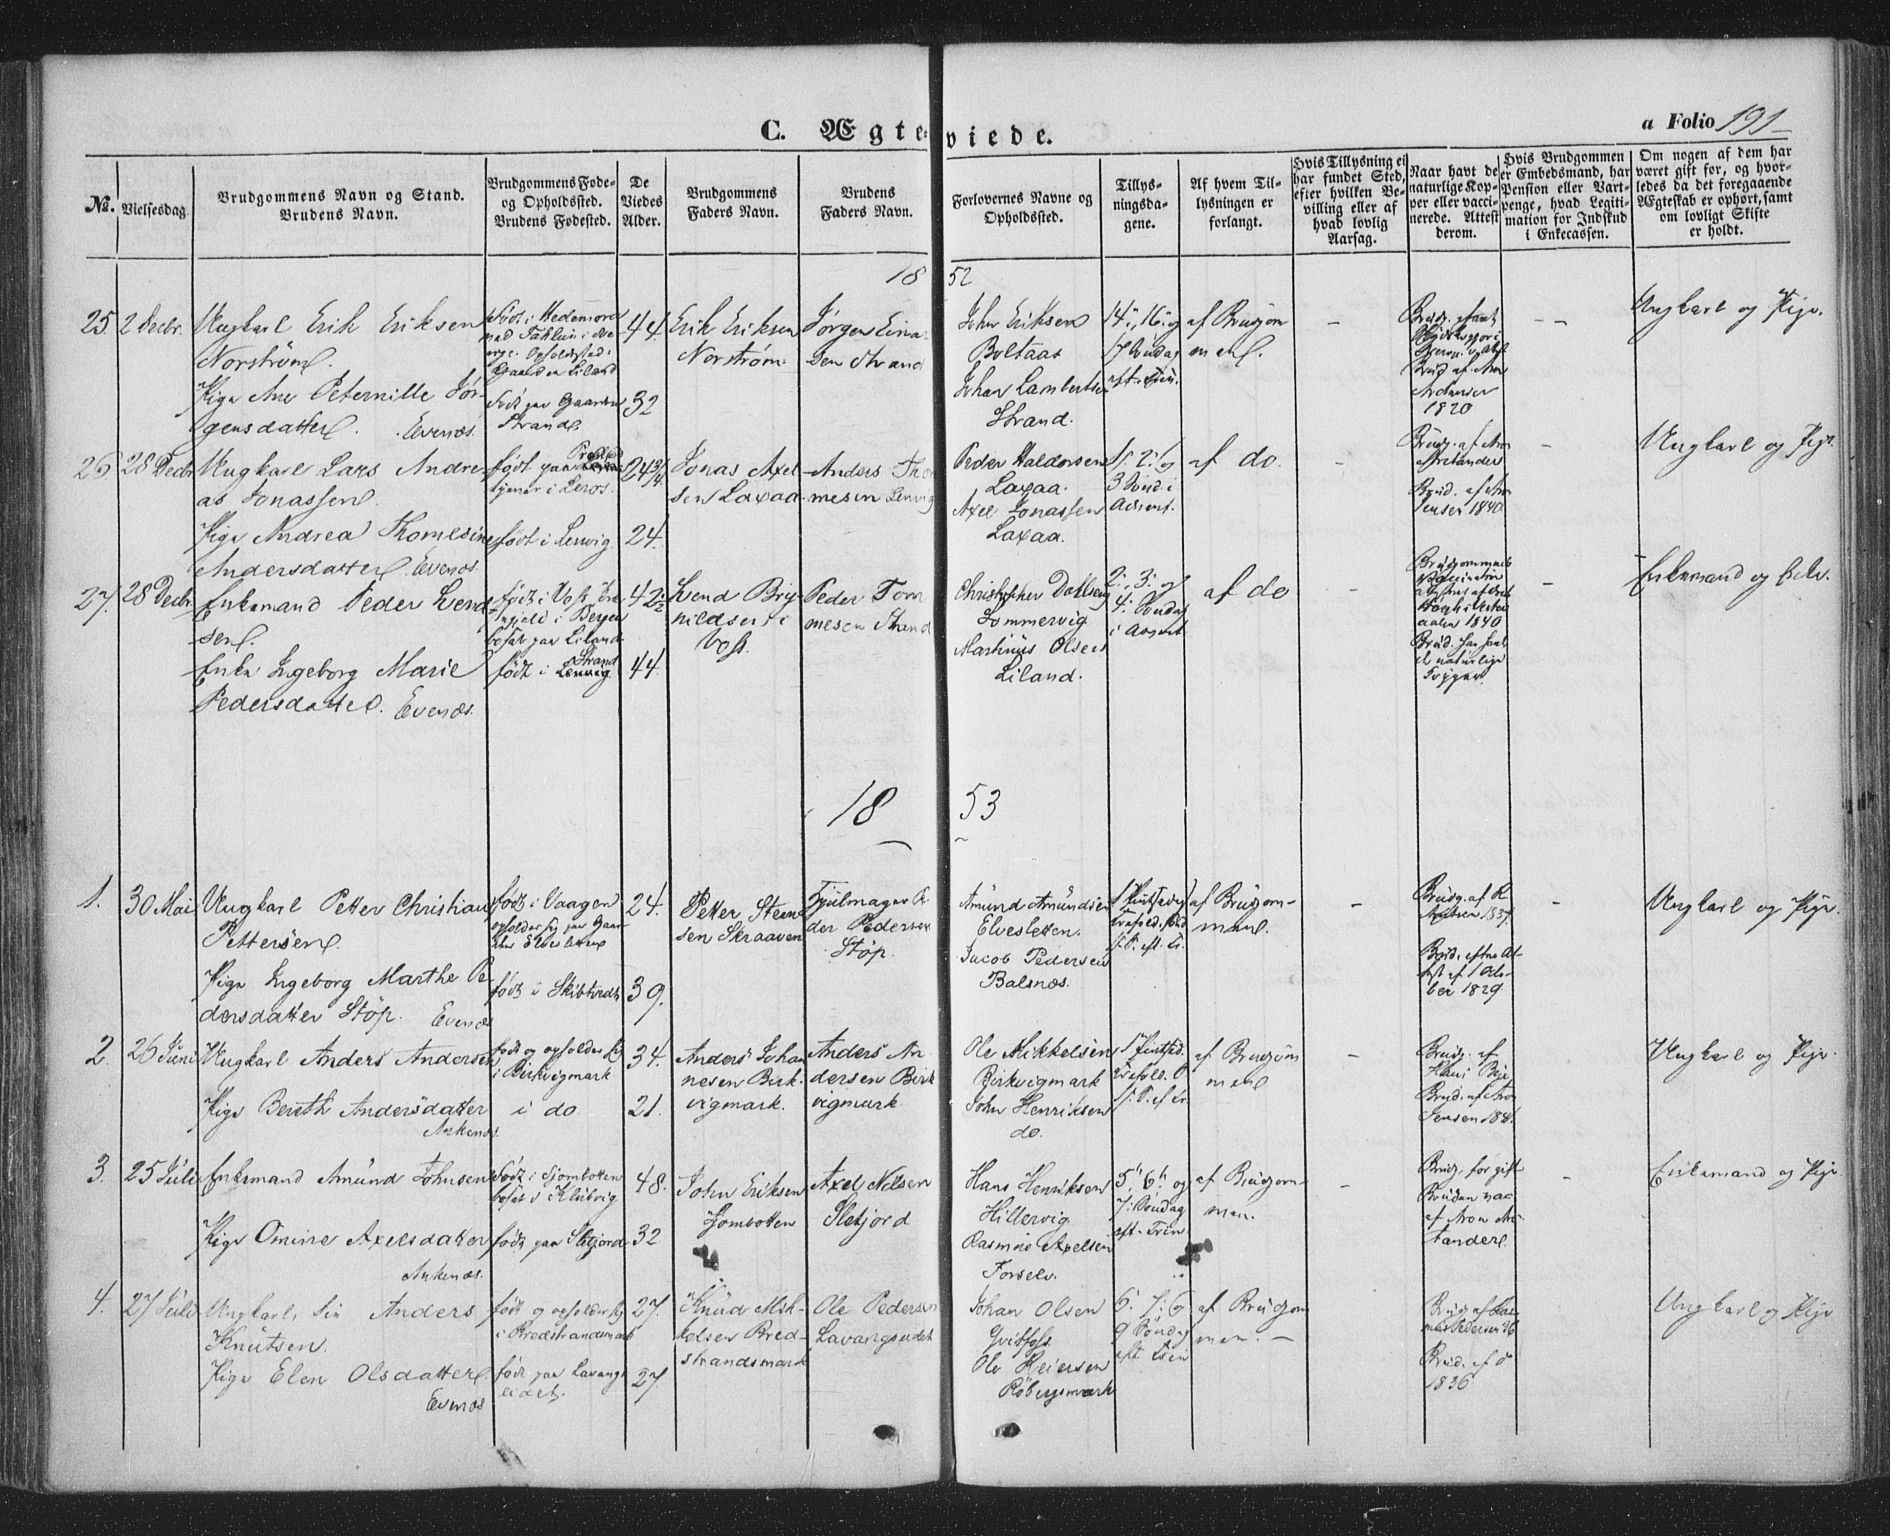 C. Ægteviede.
a Folio 191
No.
Vielsesdag.
Brudgommens Navn og Stand.
Brudens Navn.
Brudgommens Føde-
og Opholdssted.
Brudens Fødested.
De
Viedes
Alder.
Brudgommens
Faders Navn.
Brudens
Faders Navn.
Forlovernes Navne og
Opholdssted.
Tillys-
ningsda-
gene.
Af hvem Til-
lysningen er
forlangt.
Hvis Tillysning ei
har fundet Sted,
efter hvilken Be-
villing eller af
hvad lovlig
Aarsag.
Naar havt de
naturlige Kop-
per eller vacci-
nerede. Attest
derom.
Hvis Brudgommen
er Embedsmand, har
Pension eller Vart-
penge, hvad Legiti-
mation for Indskud
i Enkecassen.
Om nogen af dem har
været gift før, og hvor-
ledes da det foregaaende
Ægteskab er ophørt, samt
om lovligt Skifte
er holdt.
1852
25. 2 Decbr.
Ungkarl Erik Eriksen
Norstrøm.
Pige Ane Peternille Jør-
gensdatter. Evenæs.
Født i Hedemora
Opholdssted
Gaarden Liland
Født paa Gaarden
Strand.
44.
32
Erik Eriksen
Norstrøm.
Jørgen Eina-
sen Strand
John Eriksen
Boltaas
Johan Lambertsen
Strand.
14., 16. og
17 Søndag
eft. Trin.
af Brudgom
men.
-
1820
-
Ungkarl og Pige.
26 28 Decbr
Ungkarl Lars Andre-
as Jonassen.
Pige Andrea Thomesine
Andersdatter. Evenæs.
født paa
tjener i Lenvig.
født i Lenvig.
24 3/4
24.
Jonas Axel
sen Laxaa
Anders Thom
mesen Lenvig
Peder Haldorsen
Laxaa.
Axel Jonassen
Laxaa.
1. 2. og
3 Sønd. i
Advent.
af do.
-
Brudg. af Aron
Arctander
Brud. af Aron
Jensen 1840.
-
Ungkarl og Pige.
27. 28 Decbr
Enkemand Peder Svend
sen.
Enke Ingeborg Marie
Pedersdatter. Evenæs.
født i Voss
i Bergen
bosat paa Liland
Strand
født i Lenvig
42 1/2
44.
Svend Bry-
nildsen i
Voss.
Peder Tom
mesen Strand
Christopher Dahlberg
Sommervig
Martinus Olsen
Liland.
2., 3. og
4. Søndag
i Advent.
af do
-
Brudgommens
1840
Brud. har havt
de naturlige
Kopper
-
Enkemand og Enke.
1853
1. 30 Mai
Ungkarl Petter Christian
Pettersen.
Pige Ingeborg Marthe Pe-
dersdatter Støp. Evenæs
født i Vaagen
opholder sig paa Gaar-
den Elvesletten
født i Skibtvedt
24.
39.
Petter Steen-
sen Skraaven
Hjulmager Pe-
der Pedersen
Støp.
Amund Amundsen
Elvesletten.
Jacob Pedersen
Balsnæs.
af Brudgom-
men.
-
Brudg. af R.
Knutsen 1837.
1829
-
Ungkarl og Pige.
2. 26 Juni
Ungkarl Anders Andersen
Pige Berith Andersdatter
Ankenæs.
født og opholder sig
i Birkvigmark
i do
34.
21.
Anders Johan
nesen Birk-
vigmark.
Anders An-
dersen Birk
vigmark.
Ole Mikkelsen
Birkvigmark
John Henriksen
do.
af Brudgom
men
-
Brudg. af
Brud. af Aron
Jensen
Ungkarl og Pige.
3. 25 Juli
Enkemand Amund Johnsen
Pige Omine Axelsdatter
Ankenæs.
Født i Sjombotten
bosat i Klubvig
født paa Sletjord
48.
32
John Eriksen
Sjombotten
Axel Nilsen
Sletjord
Hans Henriksen
Hillervig
Rasmus Axelsen
Forselv.
5., 6. og
7. Søndag
eft. Trin
af Brudgom-
men.
-
Brudg. før gift
Bruden vac
af Aron Arc-
tander.
-
Enkemand og Pige
4. 27 Juli
Ungkarl, Fin Anders
Knutsen.
Pige Elen Olsdatter.
Evenæs
født og opholder sig
i Bredstrandsmark
født paa Lavangs
eidet.
27.
27
Knud Mik-
kelsen Bred-
strandsmark
Ole Pedersen
Lavangseidet
Johan Olsen
Qvitfoss.
Ole Reiersen
Røbergsmark
6. 7. og
9 Søndag
eft. Trin
af Brudgom
men.
Brud. af do
1836
Ungkarl og Pige